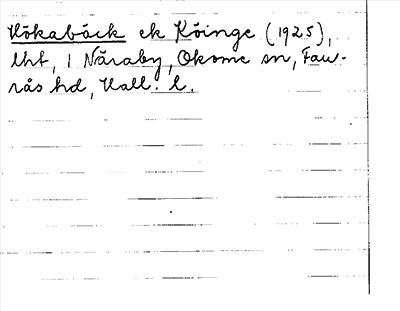 Kökabäck ek Köinge (1925),
lht, i Näraby, Okome sn, Fau-
rås hd, Hall. l.